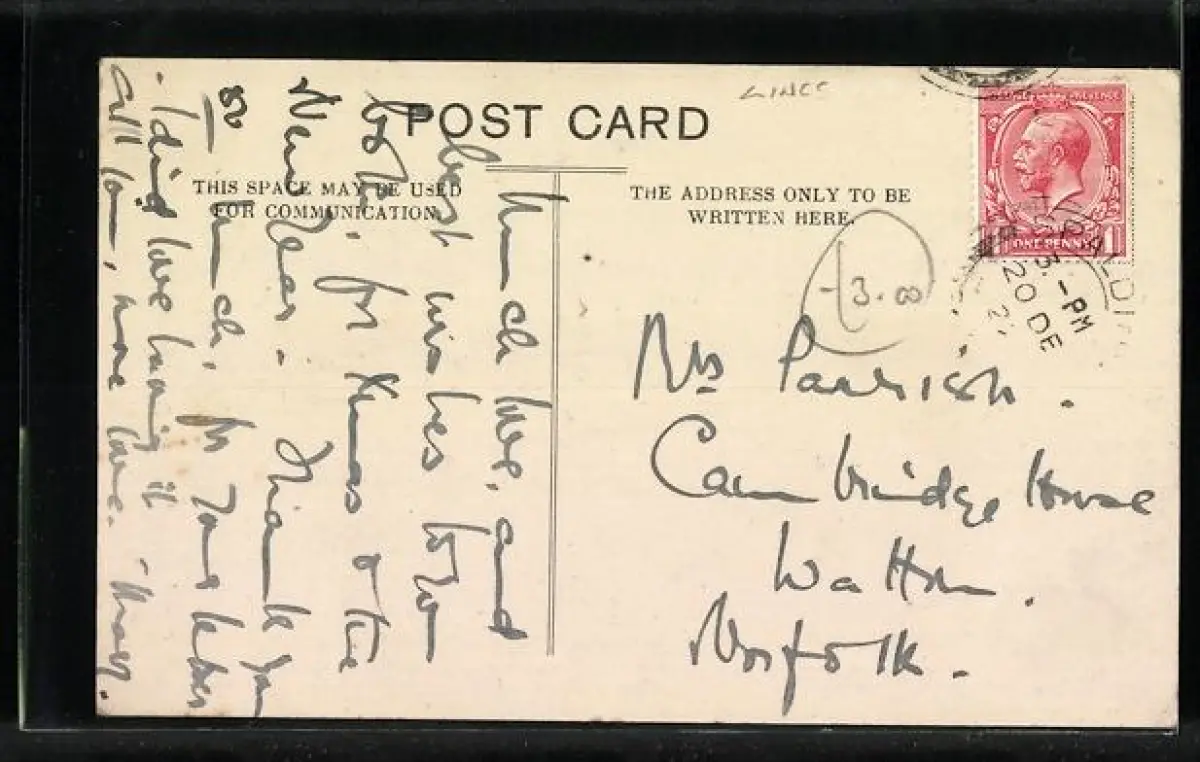 LINCS
POST CARD
THIS SPACE MAY BE USED
FOR COMMUNICATION.
THE ADDRESS ONLY TO BE
WRITTEN HERE.
ONE PENNY
3 - PM
20 DE
13.00
Mrs Parrish.
Cambridge House
Watton.
Norfolk.
Much love, and
best wishes to you
both, for Xmas & the
New Year. Thank you
so much, for your letter
- I did love having it
all love, more love. - Mary.